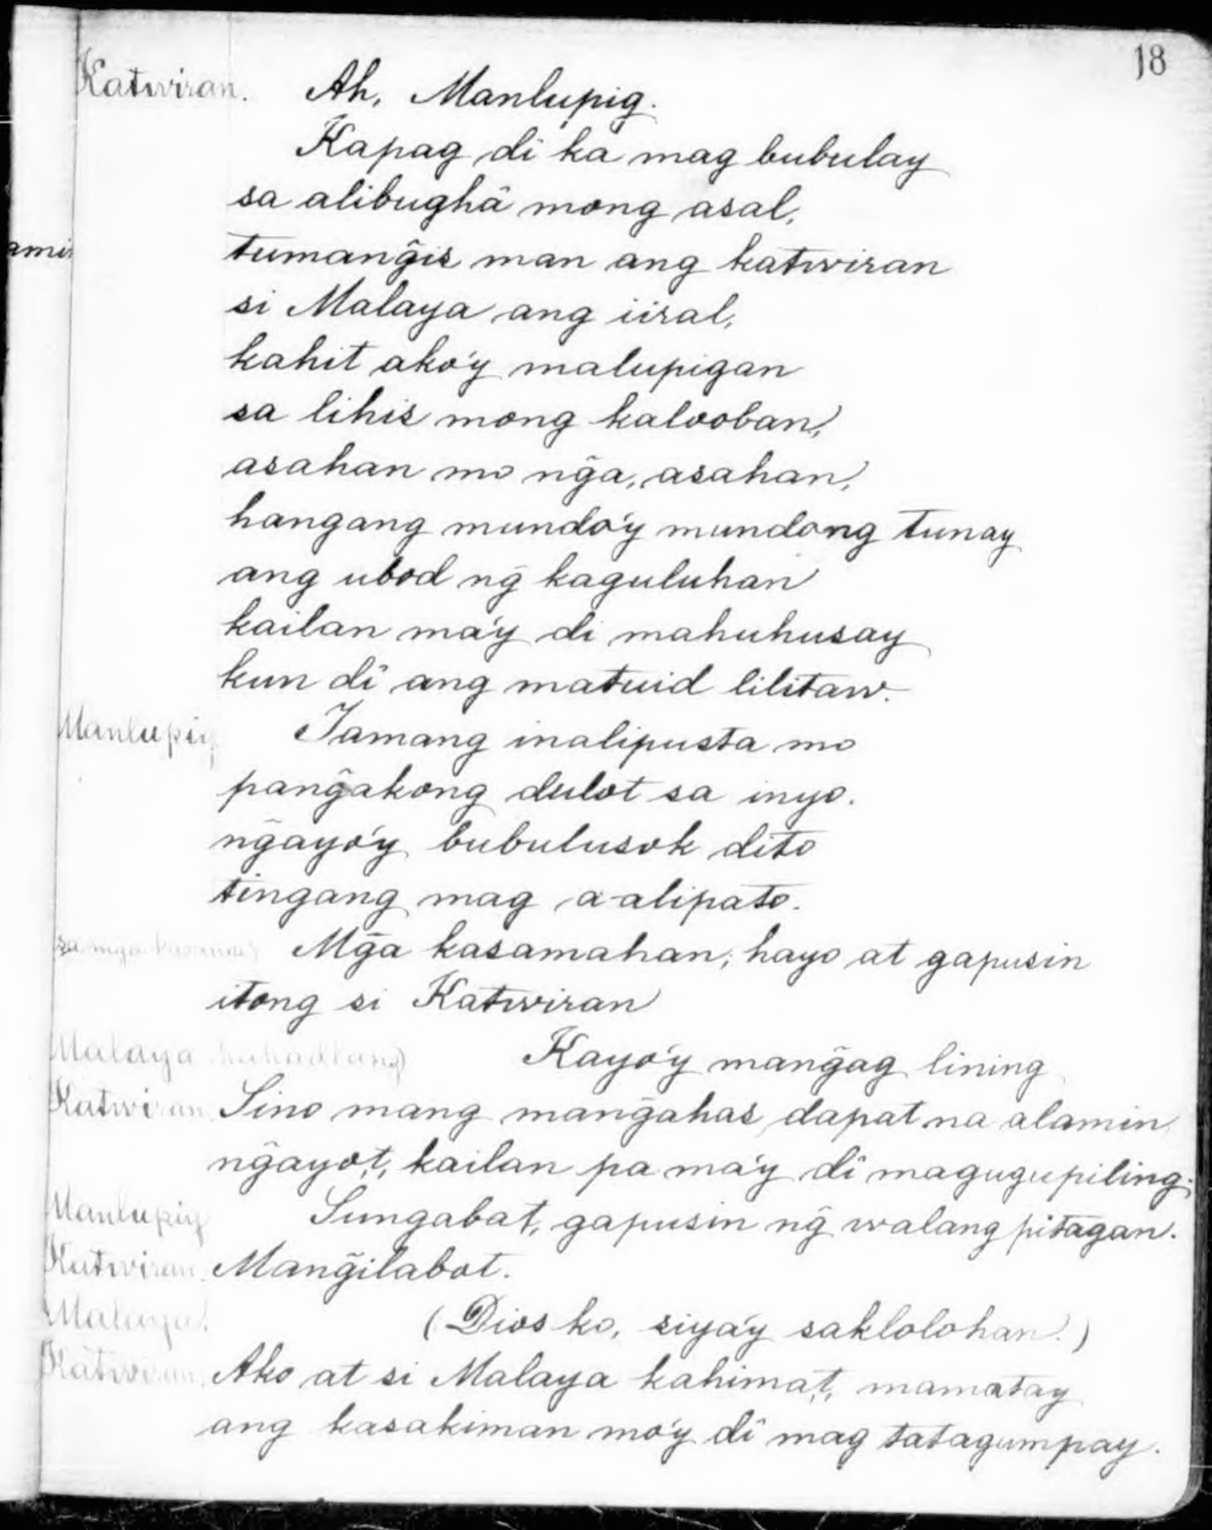 18
Katwiran. Ah, Manlupig.
Kapag di ka mag bubulay
sa alibughâ mong asal,
tumang̃is man ang katwiran
si Malaya ang iiral,
kahit ako'y malupigan
sa lihis mong kalooban,
asahan mo ng̃a, asahan,
hangang mundo'y mundong tunay
ang ubod ng̃ kaguluhan
kailan ma'y di mahuhusay
kun dî ang matuid lilitaw.
Manlupig Tamang inalipusta mo
pang̃akong dulot sa inyo.
ng̃ayo'y bubulusok dito
tingang mag a-alipato.
sa mga Mg̃a kasamahan, hayo at gapusin
itong si Katwiran
Malaya Kayo'y mang̃ag lining
Katwiran Sino mang mang̃ahas dapat na alamin
ng̃ayo,t, kailan pa ma'y dî magugupiling.
Manlupig Sungabat, gapusin ng̃ walang pitagan.
Katwiran. Mang̃ilabot.
Malaya. (Dios ko, siya'y saklolohan.)
Katwiran. Ako at si Malaya kahima,t, mamatay
ang kasakiman mo'y dî mag tatagumpay.